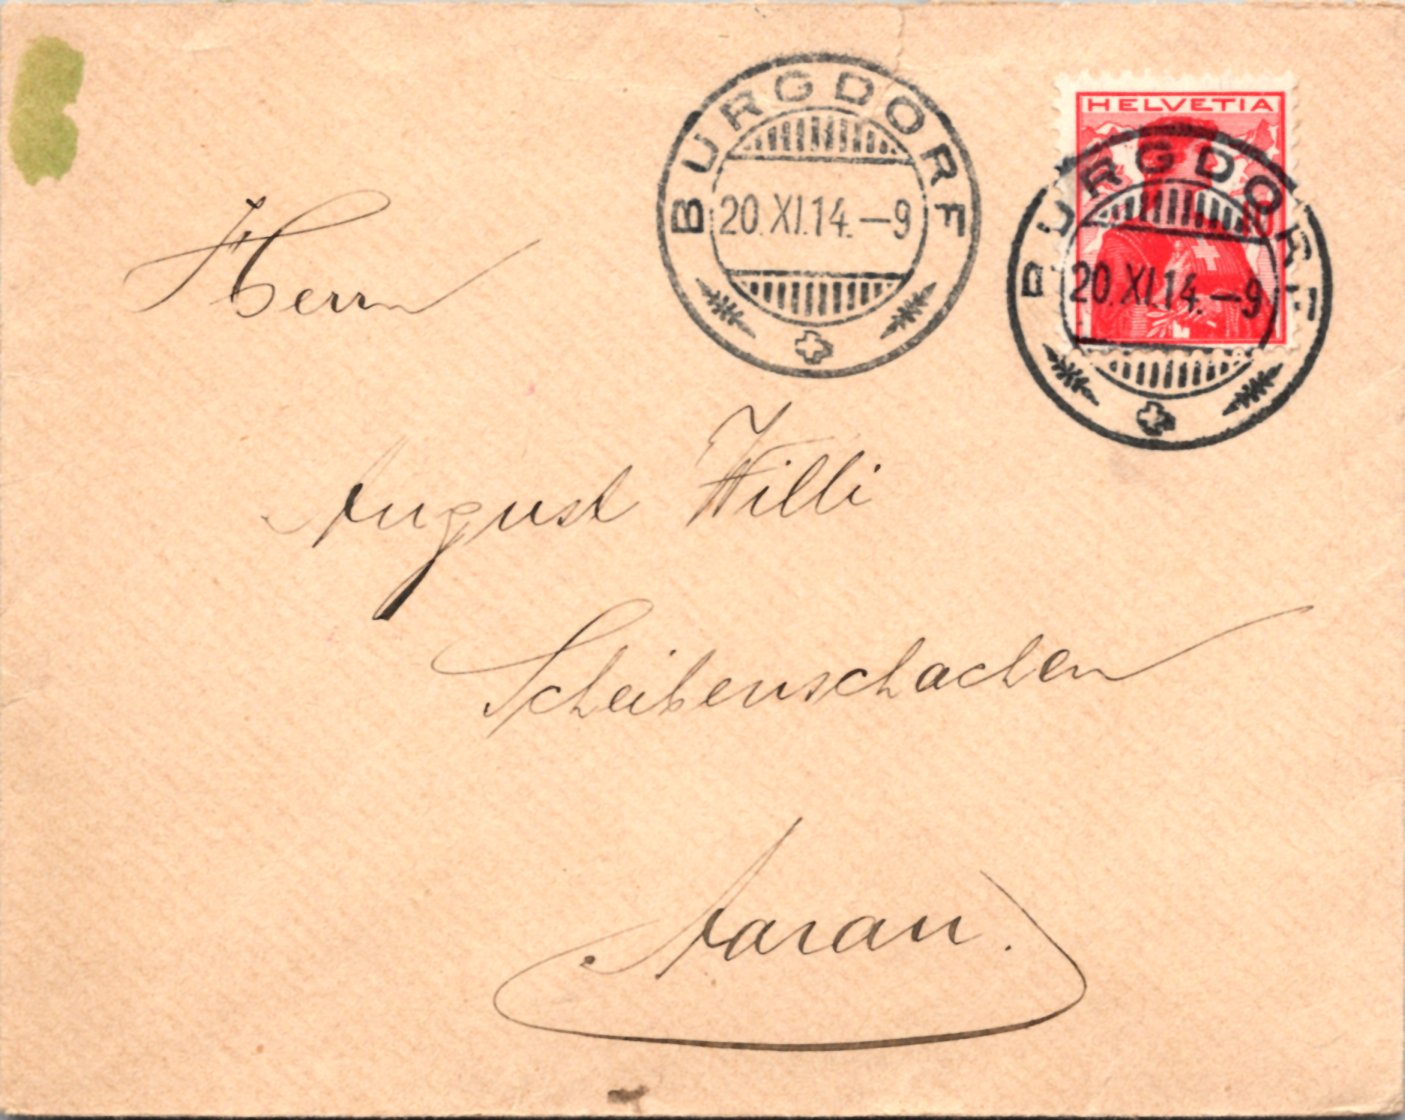 BURGDORF
20.XI.14.–9
HELVETIA
BURGDORF
20.XI.14.–9
Herrn
August Willi
Scheibenschachen
Aarau.